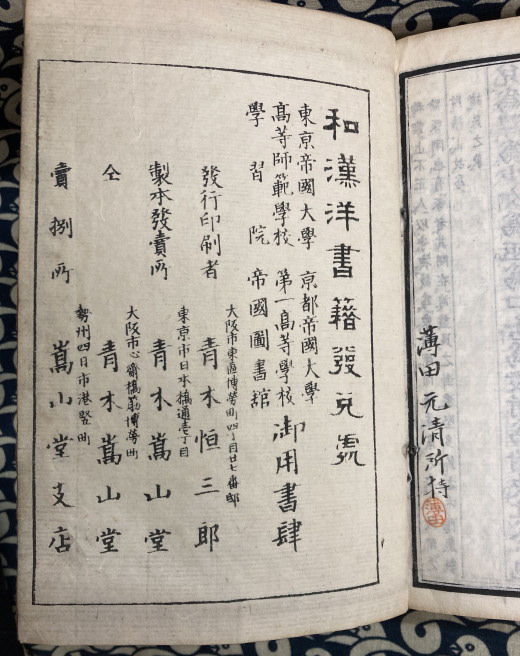 薄田元清所持
薄田
和漢洋書籍發兌處
東京帝國大學　京都帝國大學
高等師範學校　第一高等學校　御用書肆
學習院　帝國圖書舘
大阪市東區博勞町四丁目廿七番邸
發行印刷者　青木恒三郎
東京市日本橋通壱丁目
製本發賣所　青木嵩山堂
大阪市心齋橋筋博勞町
仝　青木嵩山堂
勢州四日市港竪町
賣捌所　嵩山堂支店